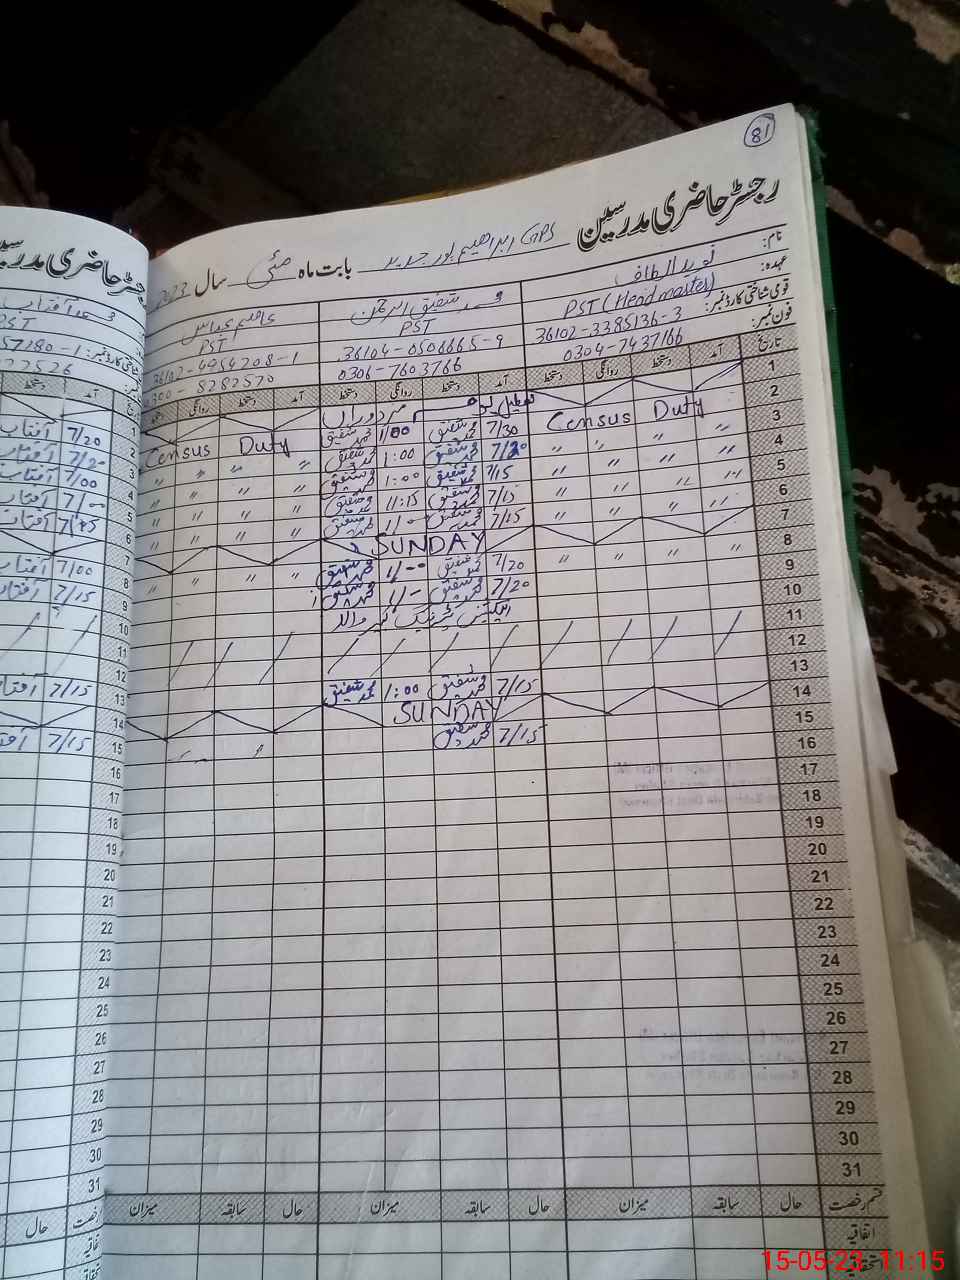 81
رجسٹر حاضری مدرسین
GPS ابراہیم پور جدید بابت ماہ مئی سال 2023
نام: نوید الطاف محمد شفیق الرحمٰن عاصم عباس
عہدہ: PST (Head master) PST PST
قومی شناختی کارڈ نمبر: 36102-3385136-3 36104-0506665-9 36102-4954208-1
فون نمبر: 0304-7437166 0306-7603766 0300-8282570
تاریخ آمد دستخط روانگی دستخط آمد دستخط روانگی دستخط آمد دستخط
1 تعطیل یوم مزدوراں
2 Census Duty 7/30 محمد شفیق 1/00 محمد شفیق Census Duty
3 " " " 7/20 محمد شفیق 1:00 محمد شفیق " " "
4 " " " 7/15 محمد شفیق 1:00 محمد شفیق " " "
5 " " " 7/15 محمد شفیق 11:15 محمد شفیق " " "
6 " " " 7/15 محمد شفیق 1/00 محمد شفیق " " "
7 SUNDAY
8 " " " 7/20 محمد شفیق 1/00 محمد شفیق " " "
9 7/20 محمد شفیق 1/- محمد شفیق
10
11
12
13 7/15 محمد شفیق 1:00 محمد شفیق
14 SUNDAY
15 7/15 محمد شفیق
16
17
18
19
20
21
22
23
24
25
26
27
28
29
30
31
قسم رخصت حال سابقہ میزان حال سابقہ میزان حال سابقہ میزان
اتفاقیہ
استحقاقیہ
رجسٹر حاضری مدرسین
محمد آفتاب
PST
57280-1
22526
آمد دستخط
1
2 7/20 آفتاب
3 7/20 آفتاب
4 7/00 آفتاب
5 7/00 آفتاب
6 7/15 آفتاب
7
8 7/00 آفتاب
9 7/15 آفتاب
10
11
12
13 7/15 آفتاب
14
15 7/15 آفتاب
16
17
18
19
20
21
22
23
24
25
26
27
28
29
30
31
رخصت حال
15-05-23 11:15